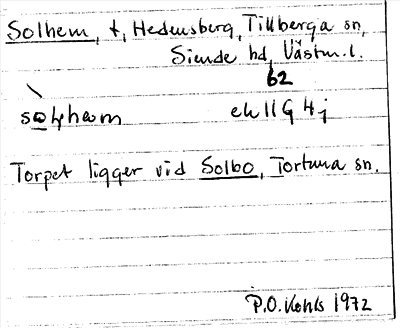 Solhem, t, Hedensberg, Tillberga sn,
Siende hd, Västm. l.
62
solhem ek 11G 4j
Torpet ligger vid Solbo, Tortuna sn.
P.O. Kohls 1972